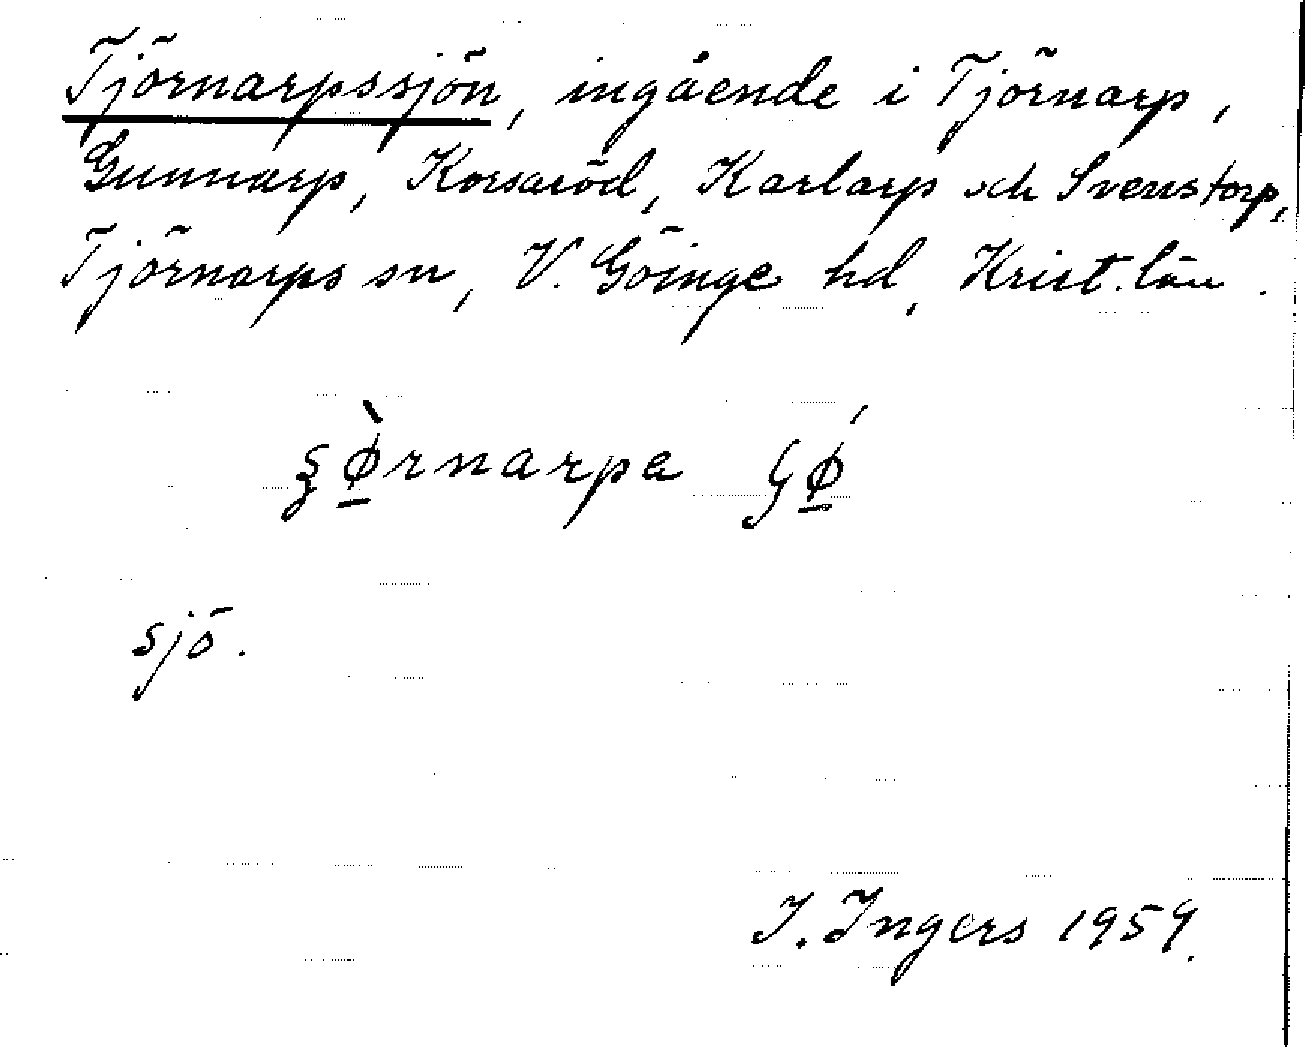 Tjörnarpssjön, ingående i Tjörnarp,
Gunnarp, Korsaröd, Karlarp och Svenstorp,
Tjörnarps sn, V. Göinge hd, Krist. län.
sjö.
I. Ingers 1959.